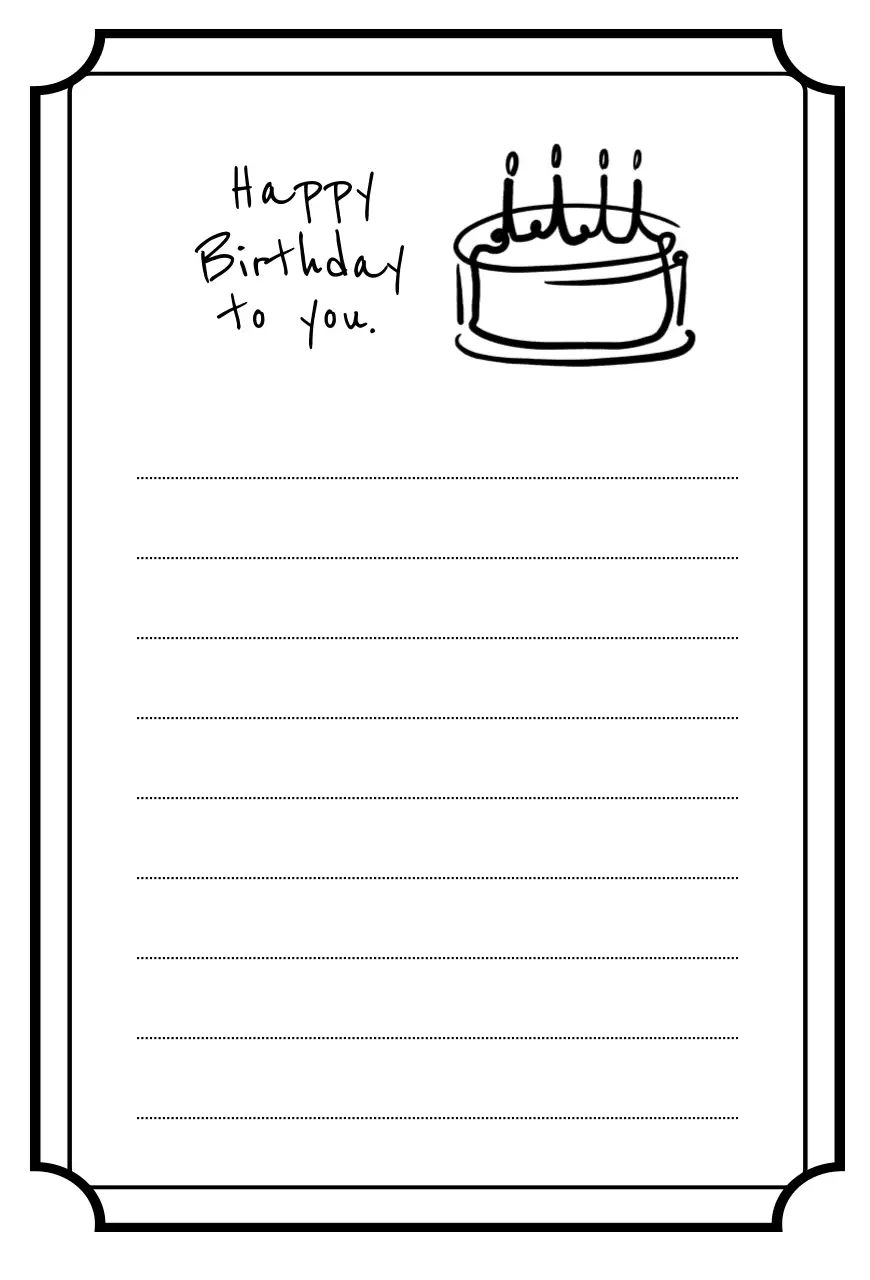 Happy
Birthday
to you.